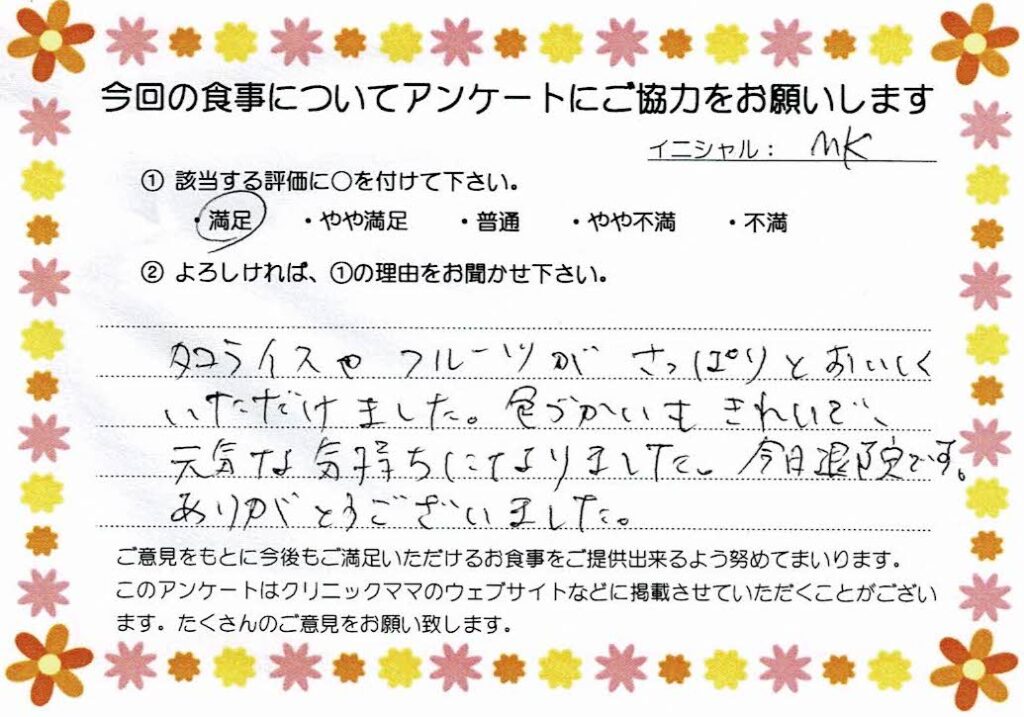 今回の食事についてアンケートにご協力をお願いします
イニシャル： MK
① 該当する評価に○を付けて下さい。
・満足 ・やや満足 ・普通 ・やや不満 ・不満
② よろしければ、①の理由をお聞かせ下さい。
タコライスや フルーツが さっぱりとおいしく
いただけました。色づかいも きれいで、
元気な気持ちになりました。今日退院です。
ありがとうございました。
ご意見をもとに今後もご満足いただけるお食事をご提供出来るよう努めてまいります。
このアンケートはクリニックママのウェブサイトなどに掲載させていただくことがござい
ます。たくさんのご意見をお願い致します。